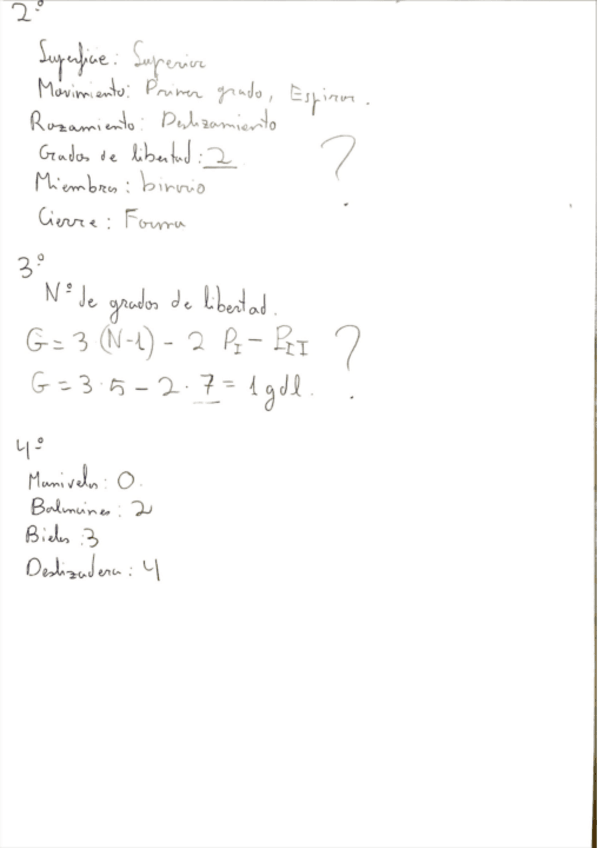 2.º
Superficie: Superior
Movimiento: Primer grado,
Rozamiento: Deslizamiento
Grados de libertad: 2
?
Miembros: binario
Cierre: Forma
3.º
Nº de grados de libertad.
G = 3 (N-1) - 2 P_I - P_II ?
G = 3·5 - 2·7 = 1 gdl.
4º
Manivelas: 0.
Balancines: 2
Bielas: 3
Deslizadera: 4